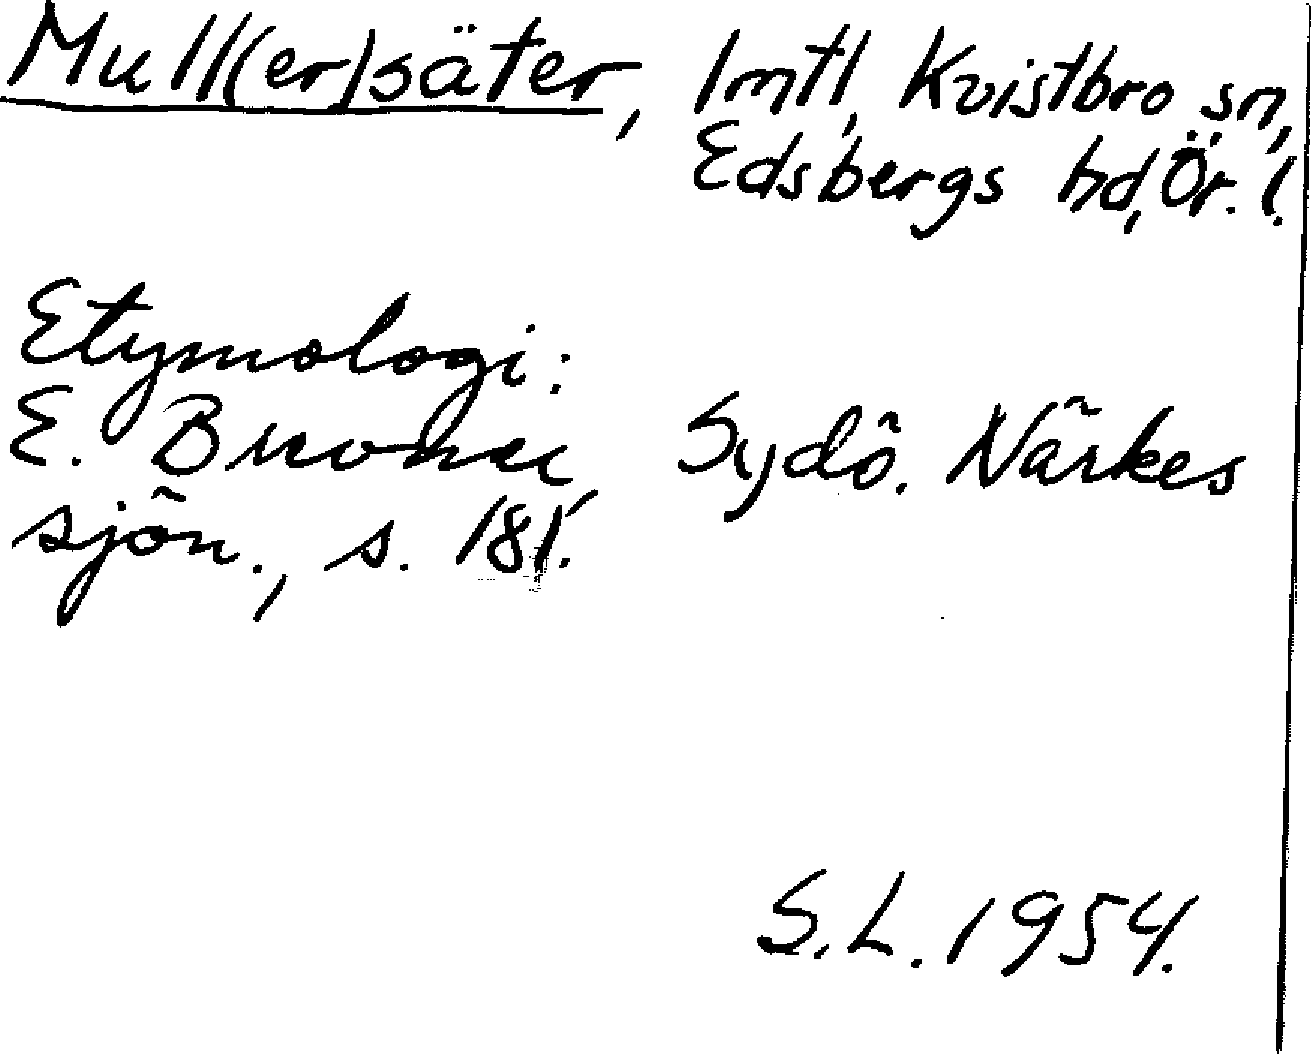 Mull(er)säter, Imtl, Kvistbro sn,
Edsbergs hd, Ör. l.
Etymologi:
E. Bruoner Sydö. Närkes
sjön., s. 181.
S.L. 1954.